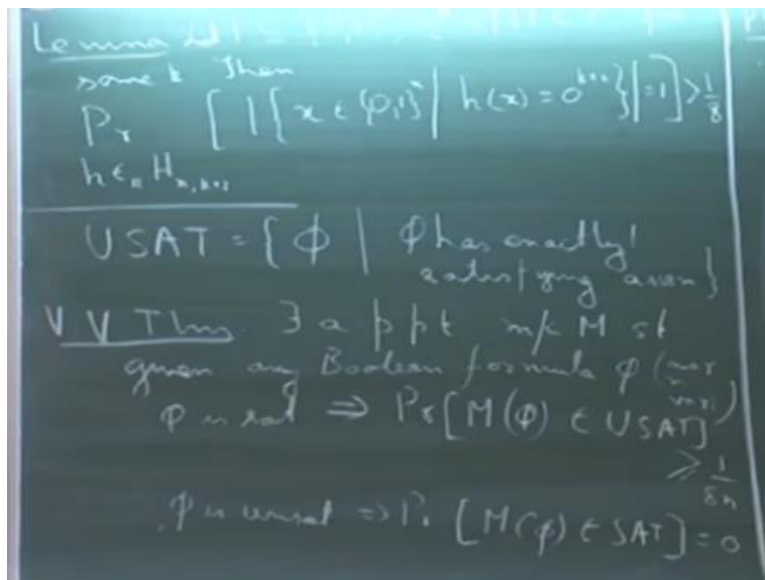 Lemma
some k Then
Pr [ | { x ∈ {0,1}^n | h(x) = 0^{k+2} } | = 1 ] > 1/8
h ∈_R H_{n,k+2}
USAT = { φ | φ has exactly 1
satisfying assn }
V V Thm. ∃ a ppt m/c M st
given any Boolean formula φ (over
n var.)
φ is sat ⇒ Pr [ M(φ) ∈ USAT ]
≥ 1/8n
φ is unsat ⇒ Pr [ M(φ) ∈ SAT ] = 0